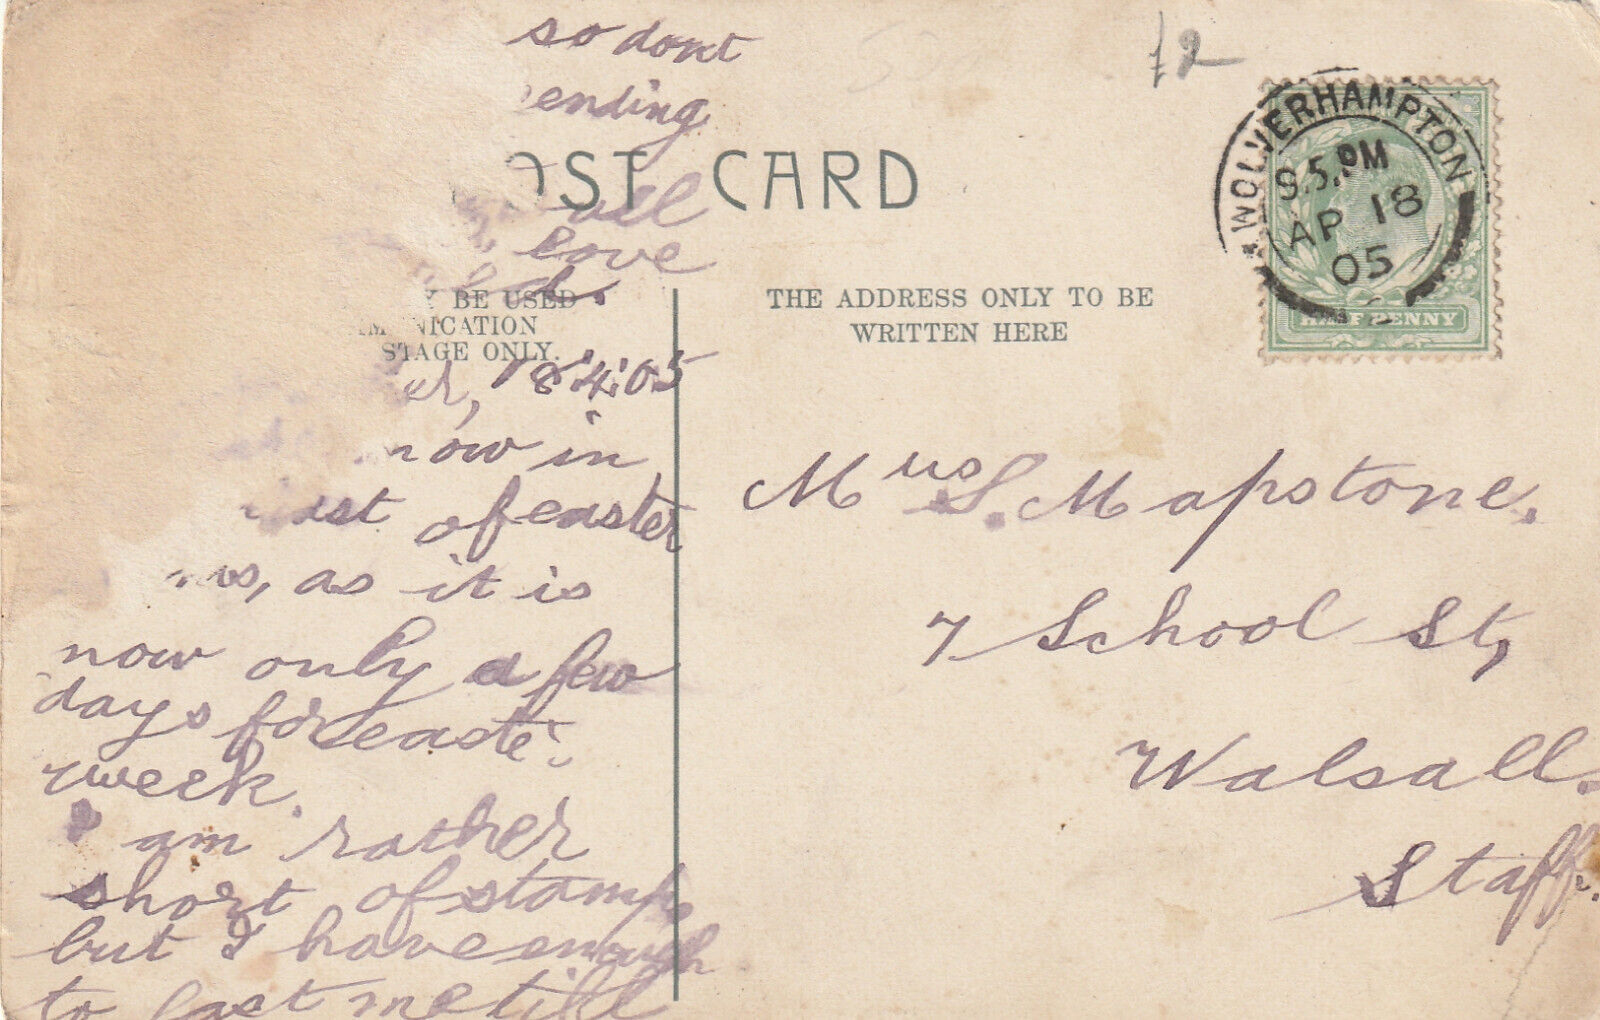 so dont
ending
£2
POST CARD
all
love
Y BE USED
MUNICATION
STAGE ONLY.
THE ADDRESS ONLY TO BE
WRITTEN HERE
WOLVERHAMPTON
9.5.PM
AP 18
05
HALF PENNY
18.4.05
now in
of easter
as it is
now only a few
days for easter
week.
I am rather
short of stamps
but I have enough
to last me till
Mrs S. Mapstone.
7 School St,
Walsall.
Staff.